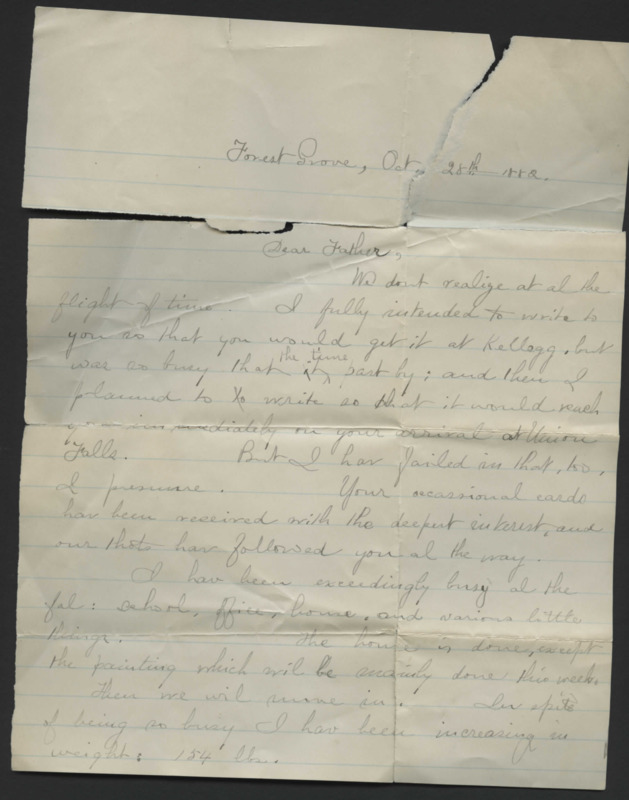 Forest Grove, Oct. 28th 1882.
Dear Father,
We dont realize at al the
flight of time. I fully intended to write to
you so that you would get it at Kellogg, but
was so busy that the time past by; and then I
planned to write so that it would reach
you immediately on your arrival at Union
Falls. But I hav failed in that, too,
I presume. Your occassional cards
hav been received with the deepest interest, and
our thots hav followed you al the way.
I hav been exceedingly busy al the
fal: school, office, house, and various little
things. The house is done, except
the painting which wil be mainly done this week.
Then we wil move in. In spite
of being so busy I hav been increasing in
weight: 154 lbs.